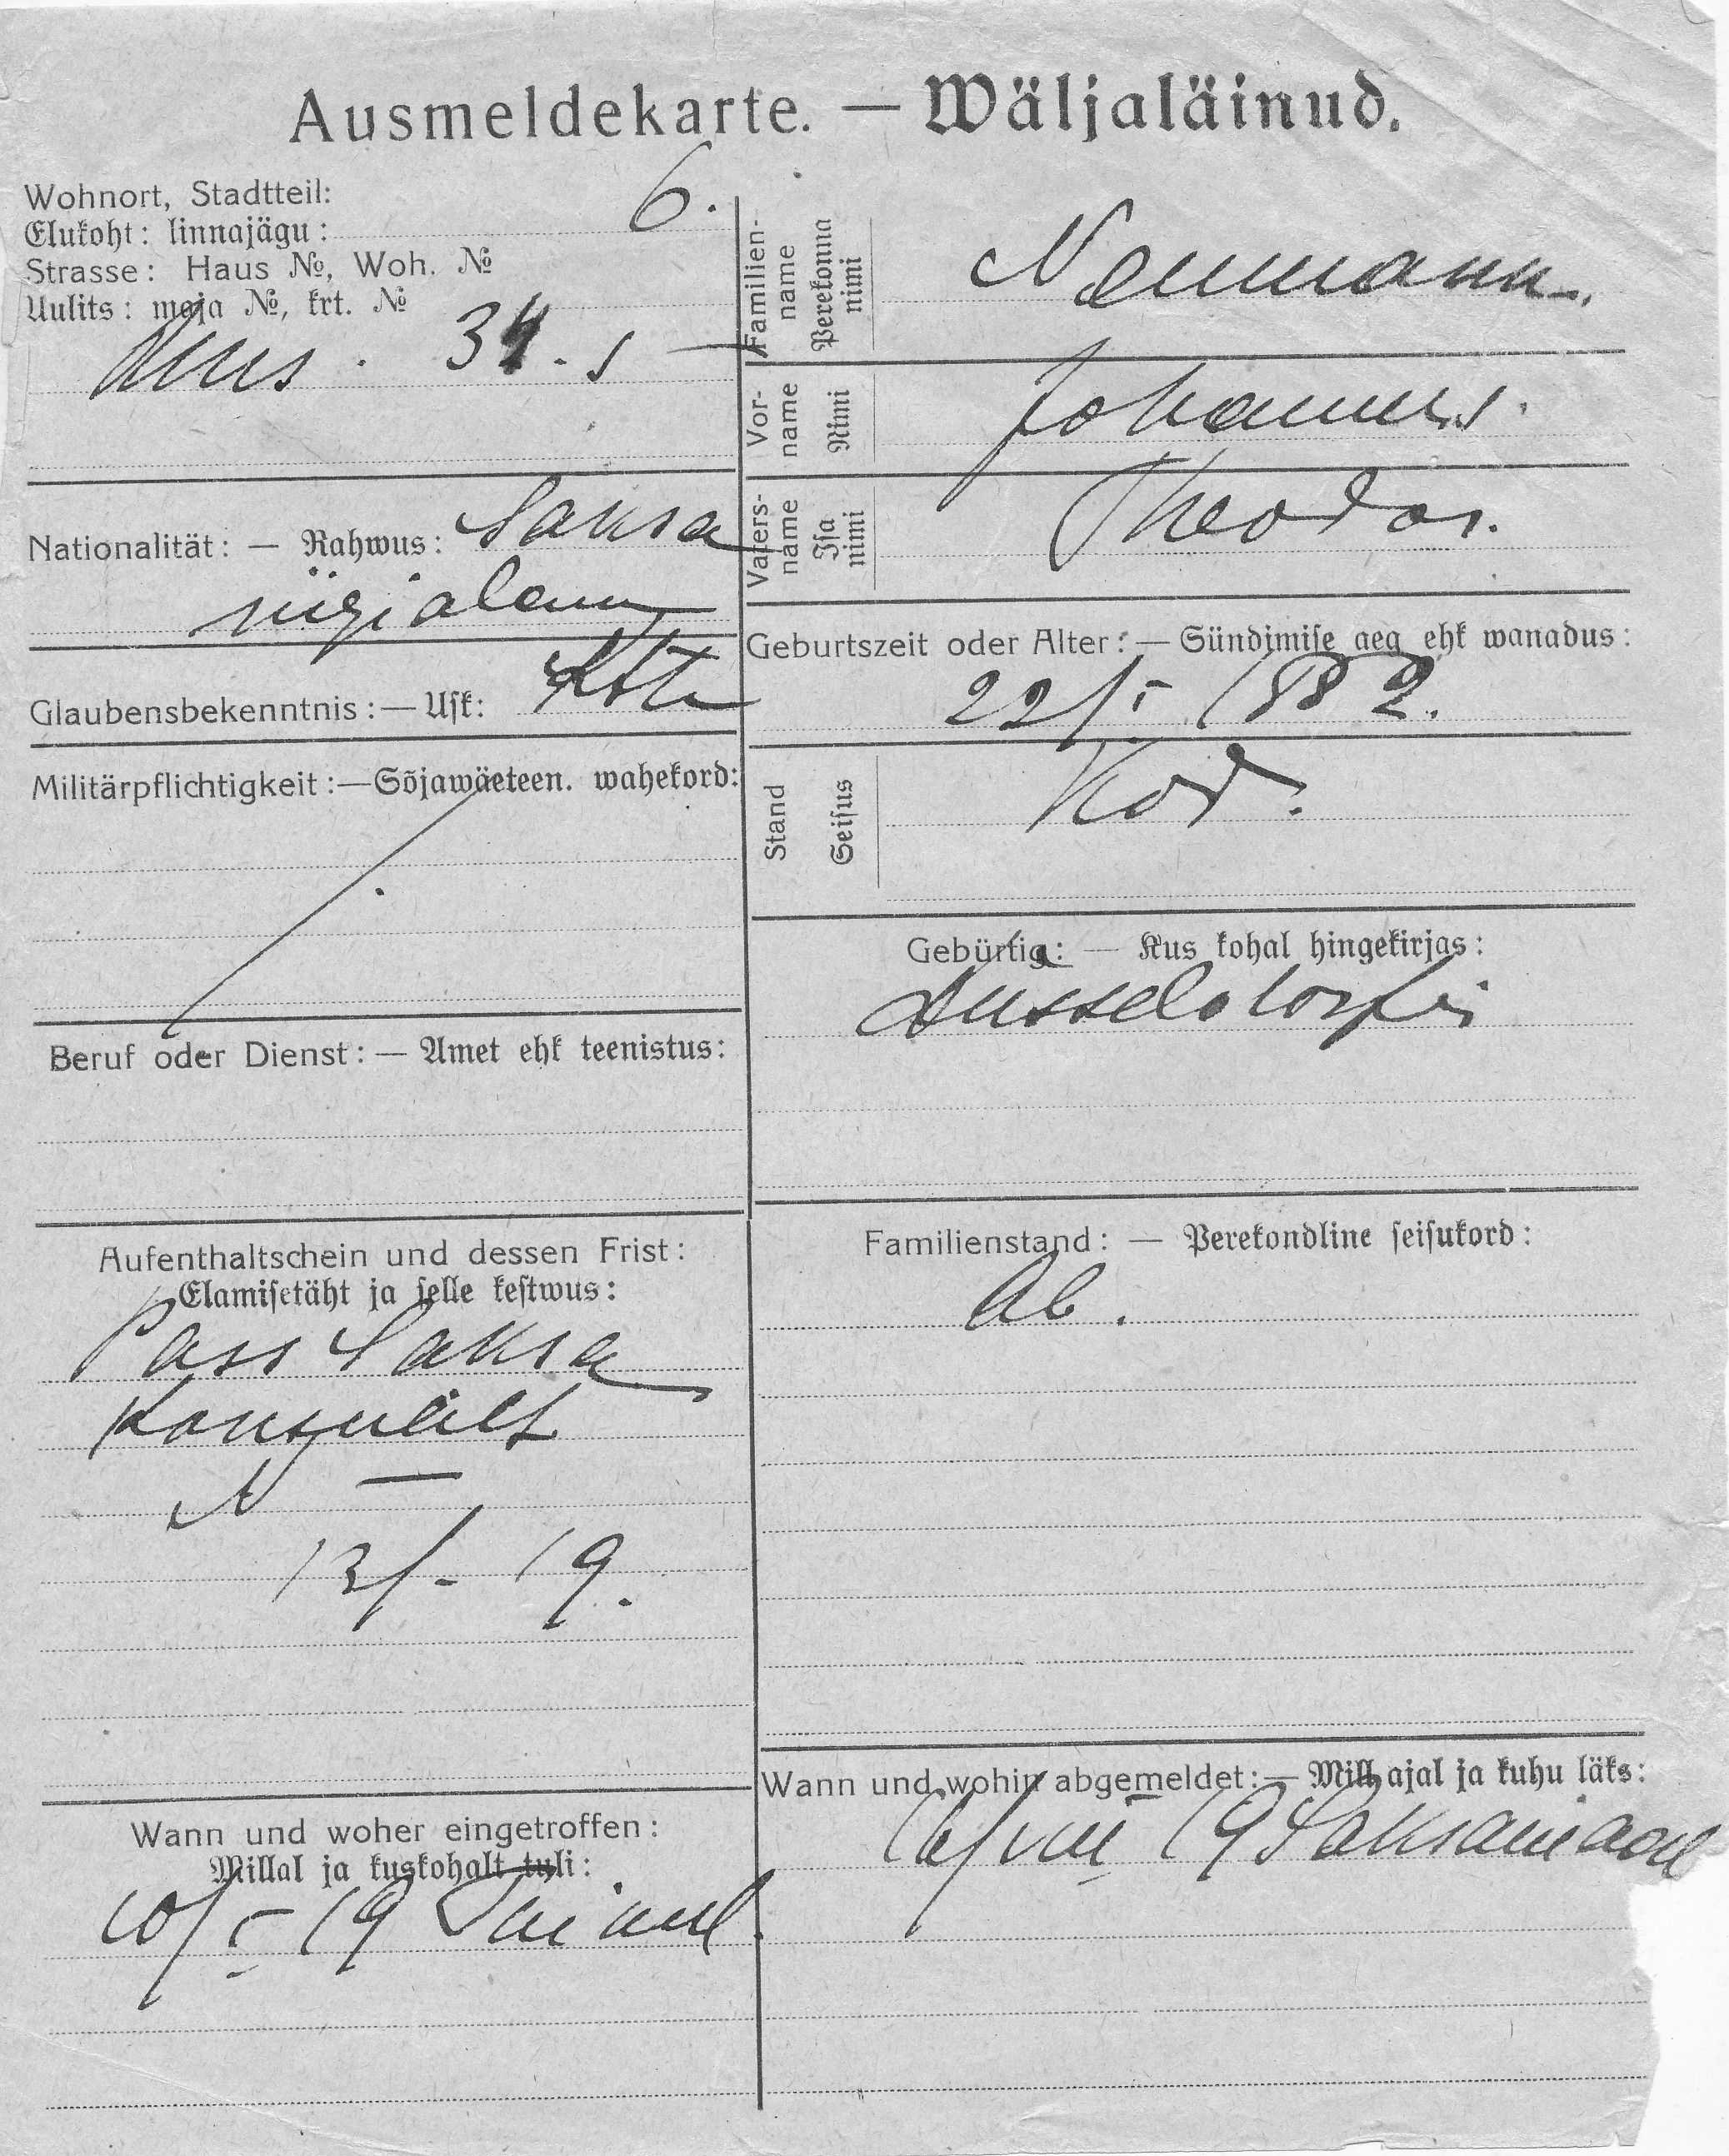 Ausmeldekarte. — Wäljaläinud.
Wohnort, Stadtteil:
Elukoht: linnajägu: 6.
Strasse: Haus №, Woh. №
Uulits: maja №, krt. №
Uus. 34. 1
Nationalität: — Rahwus: Saksa
riigialam
Glaubensbekenntnis: — Usk:
Militärpflichtigkeit: — Sõjawäeteen. wahekord:
Beruf oder Dienst: — Amet ehk teenistus:
Aufenthaltschein und dessen Frist:
Elamisetäht ja selle kestwus:
Pass Saksa
Konsulilt
N —
19.
Wann und woher eingetroffen:
Millal ja kuskohalt tuli:
10/V 19
Familien-
name
Perekonna
nimi
Neumann.
Vor-
name
Nimi
Johannes.
Vaters-
name
Isa
nimi
Theodor.
Geburtszeit oder Alter: — Sündimise aeg ehk wanadus:
22/I 1882.
Stand
Seisus
Kod.
Gebürtig: — Kus kohal hingekirjas:
Dusseldorfis
Familienstand: — Perekondline seisukord:
Ab.
Wann und wohin abgemeldet: — Mill ajal ja kuhu läks:
19 Saksamaale